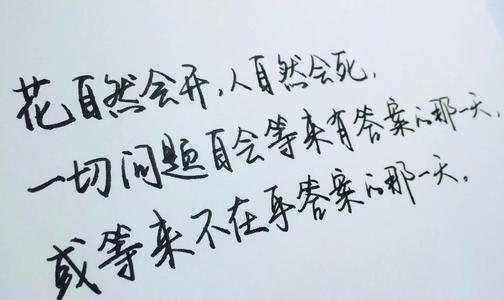 花自然会开，人自然会死，
一切问题自会等来有答案的那一天，
或等来不在乎答案的那一天。